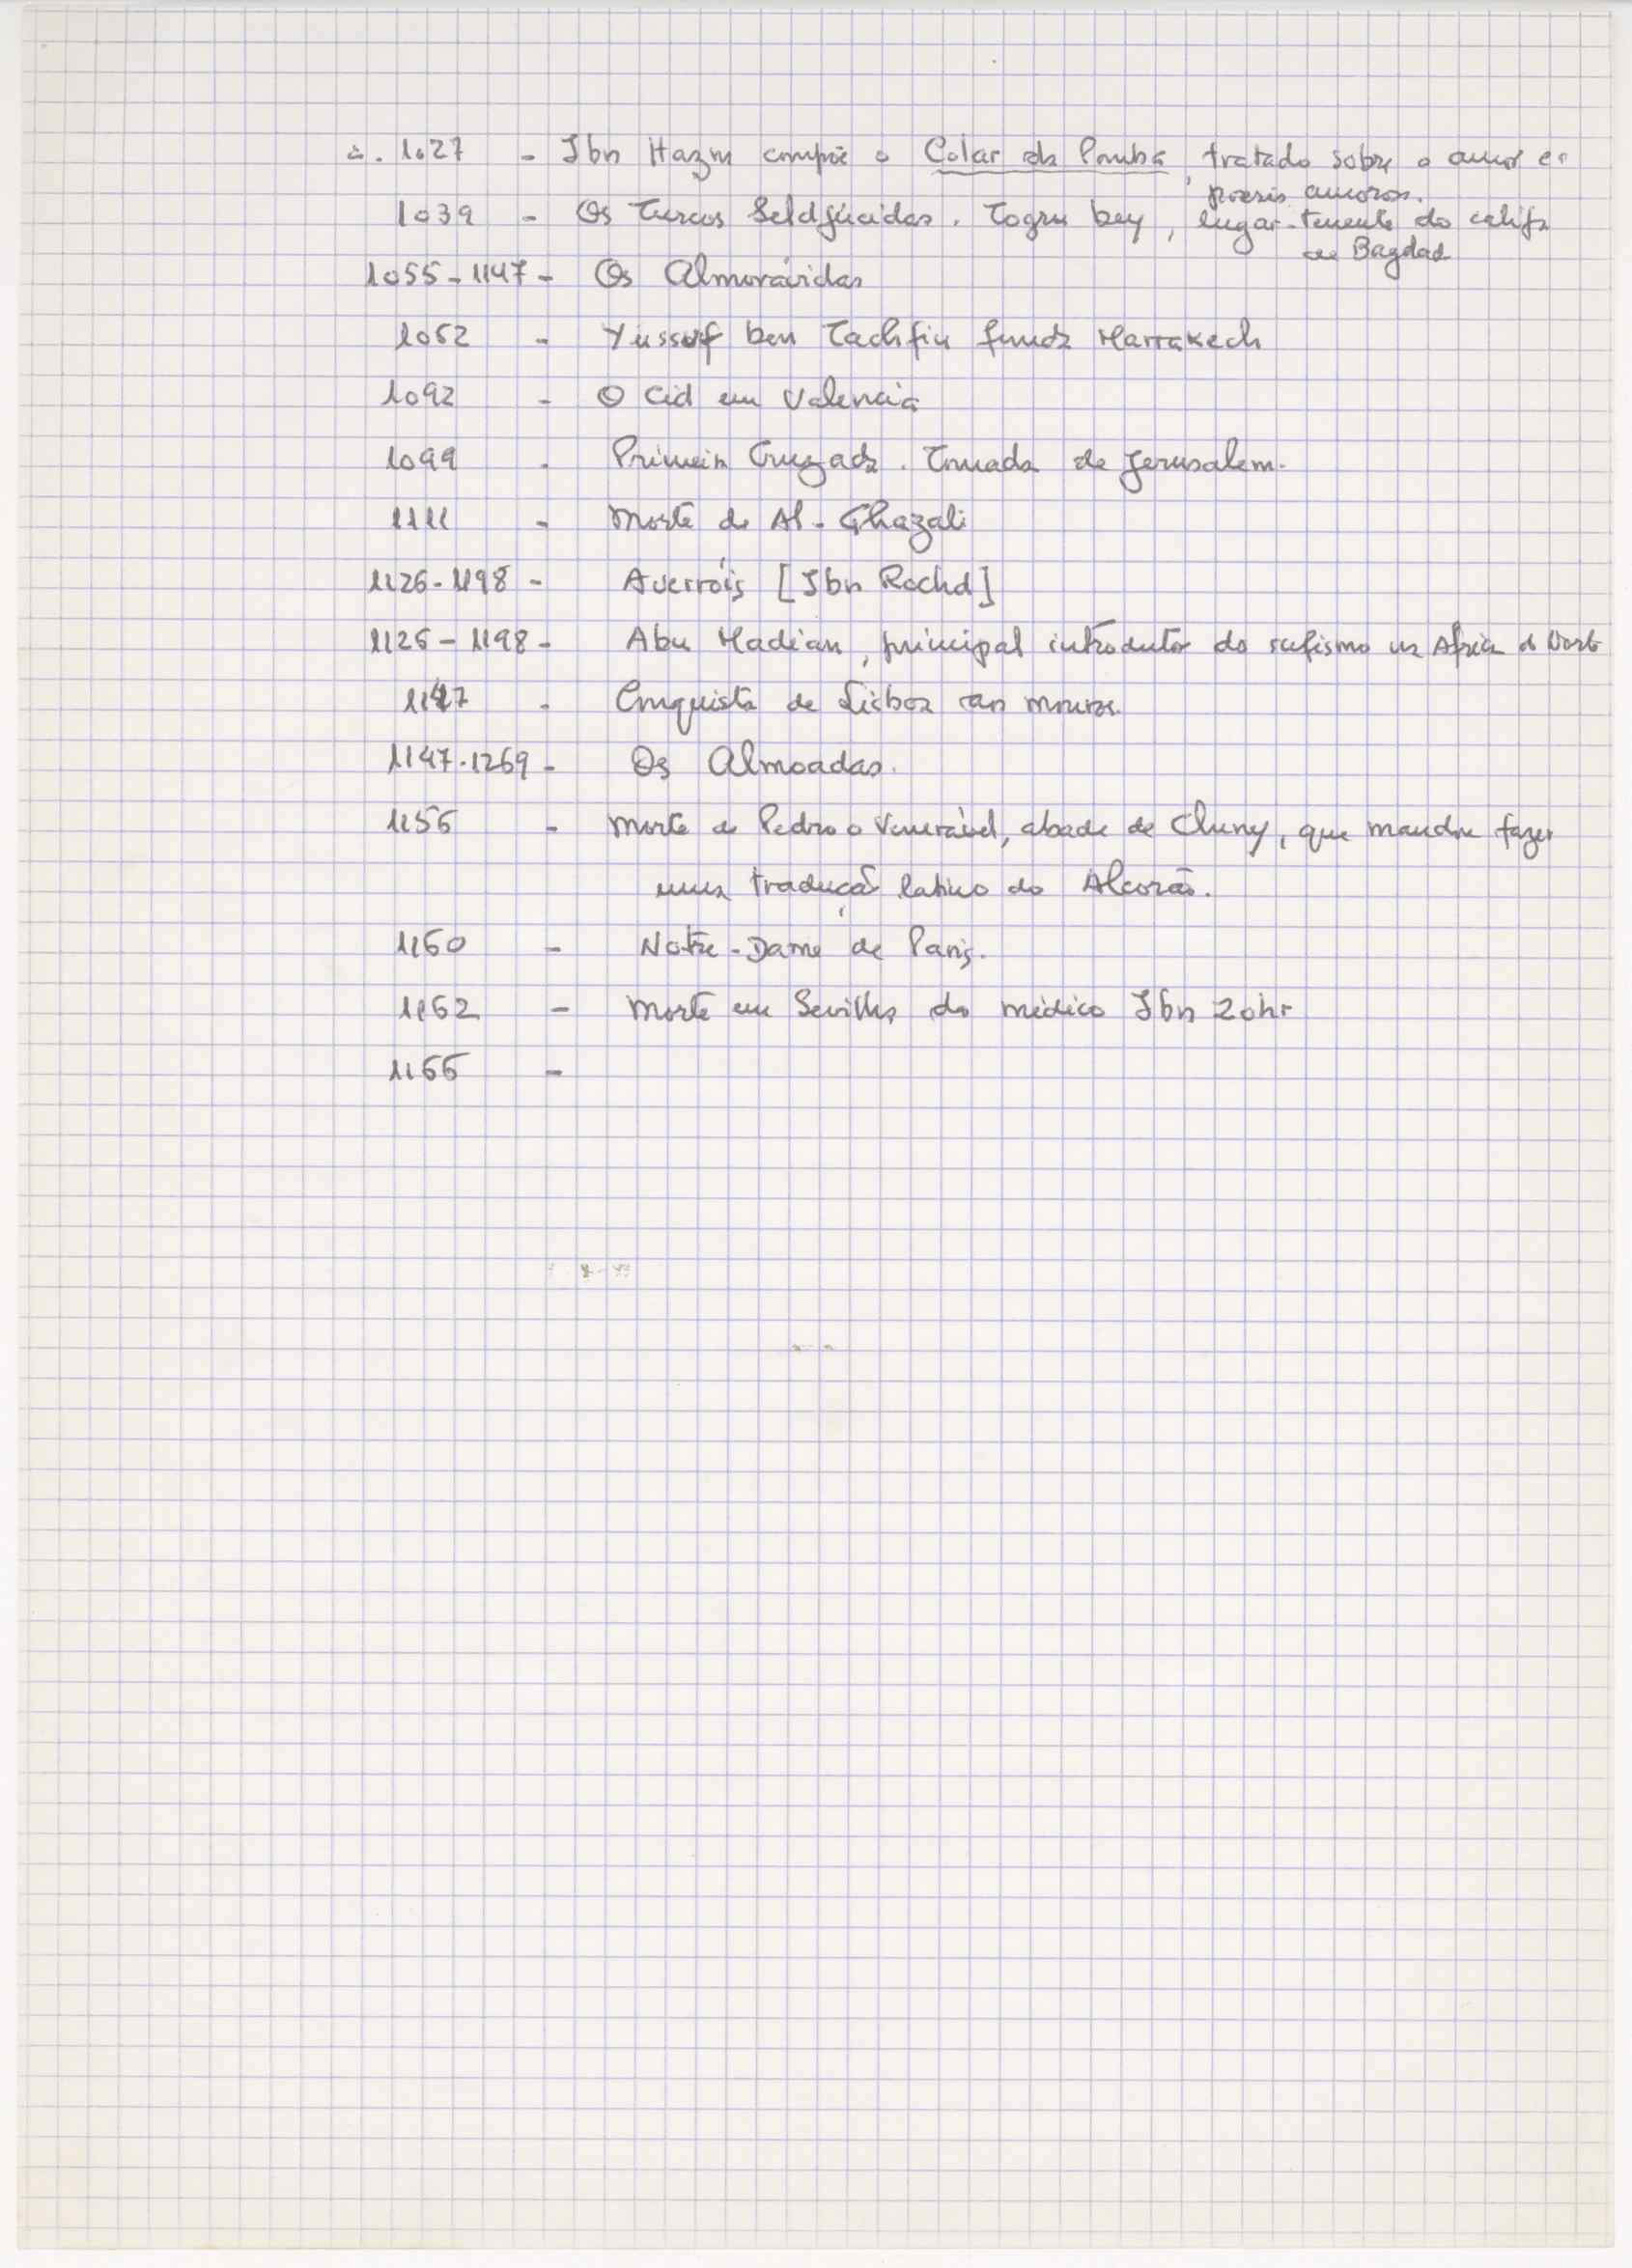 c. 1027 - Ibn Hazm compõe o Colar da Pomba, tratado sobre o amor e a
poesia amorosa.
1039 - Os Turcos Seldjúcidas. Togru bey, lugar-tenente do califa
de Bagdad
1055-1147- Os Almorávidas
1062 - Yussuf ben Tachfin funda Marrakech
1092 - O Cid em Valencia
1099 - Primeira Cruzada. Tomada de Jerusalem.
1111 - Morte de Al-Ghazali
1126-1198 - Averróis [Ibn Rochd]
1126-1198- Abu Madian, principal introdutor do sufismo na Africa do Norte
1147 - Conquista de Lisboa aos mouros.
1147-1269- Os Almoadas.
1156 - Morte de Pedro o Venerável, abade de Cluny, que mandou fazer
uma tradução latina do Alcorão.
1160 - Notre-Dame de Paris.
1162 - Morte em Sevilha do médico Ibn Zohr
1166 -